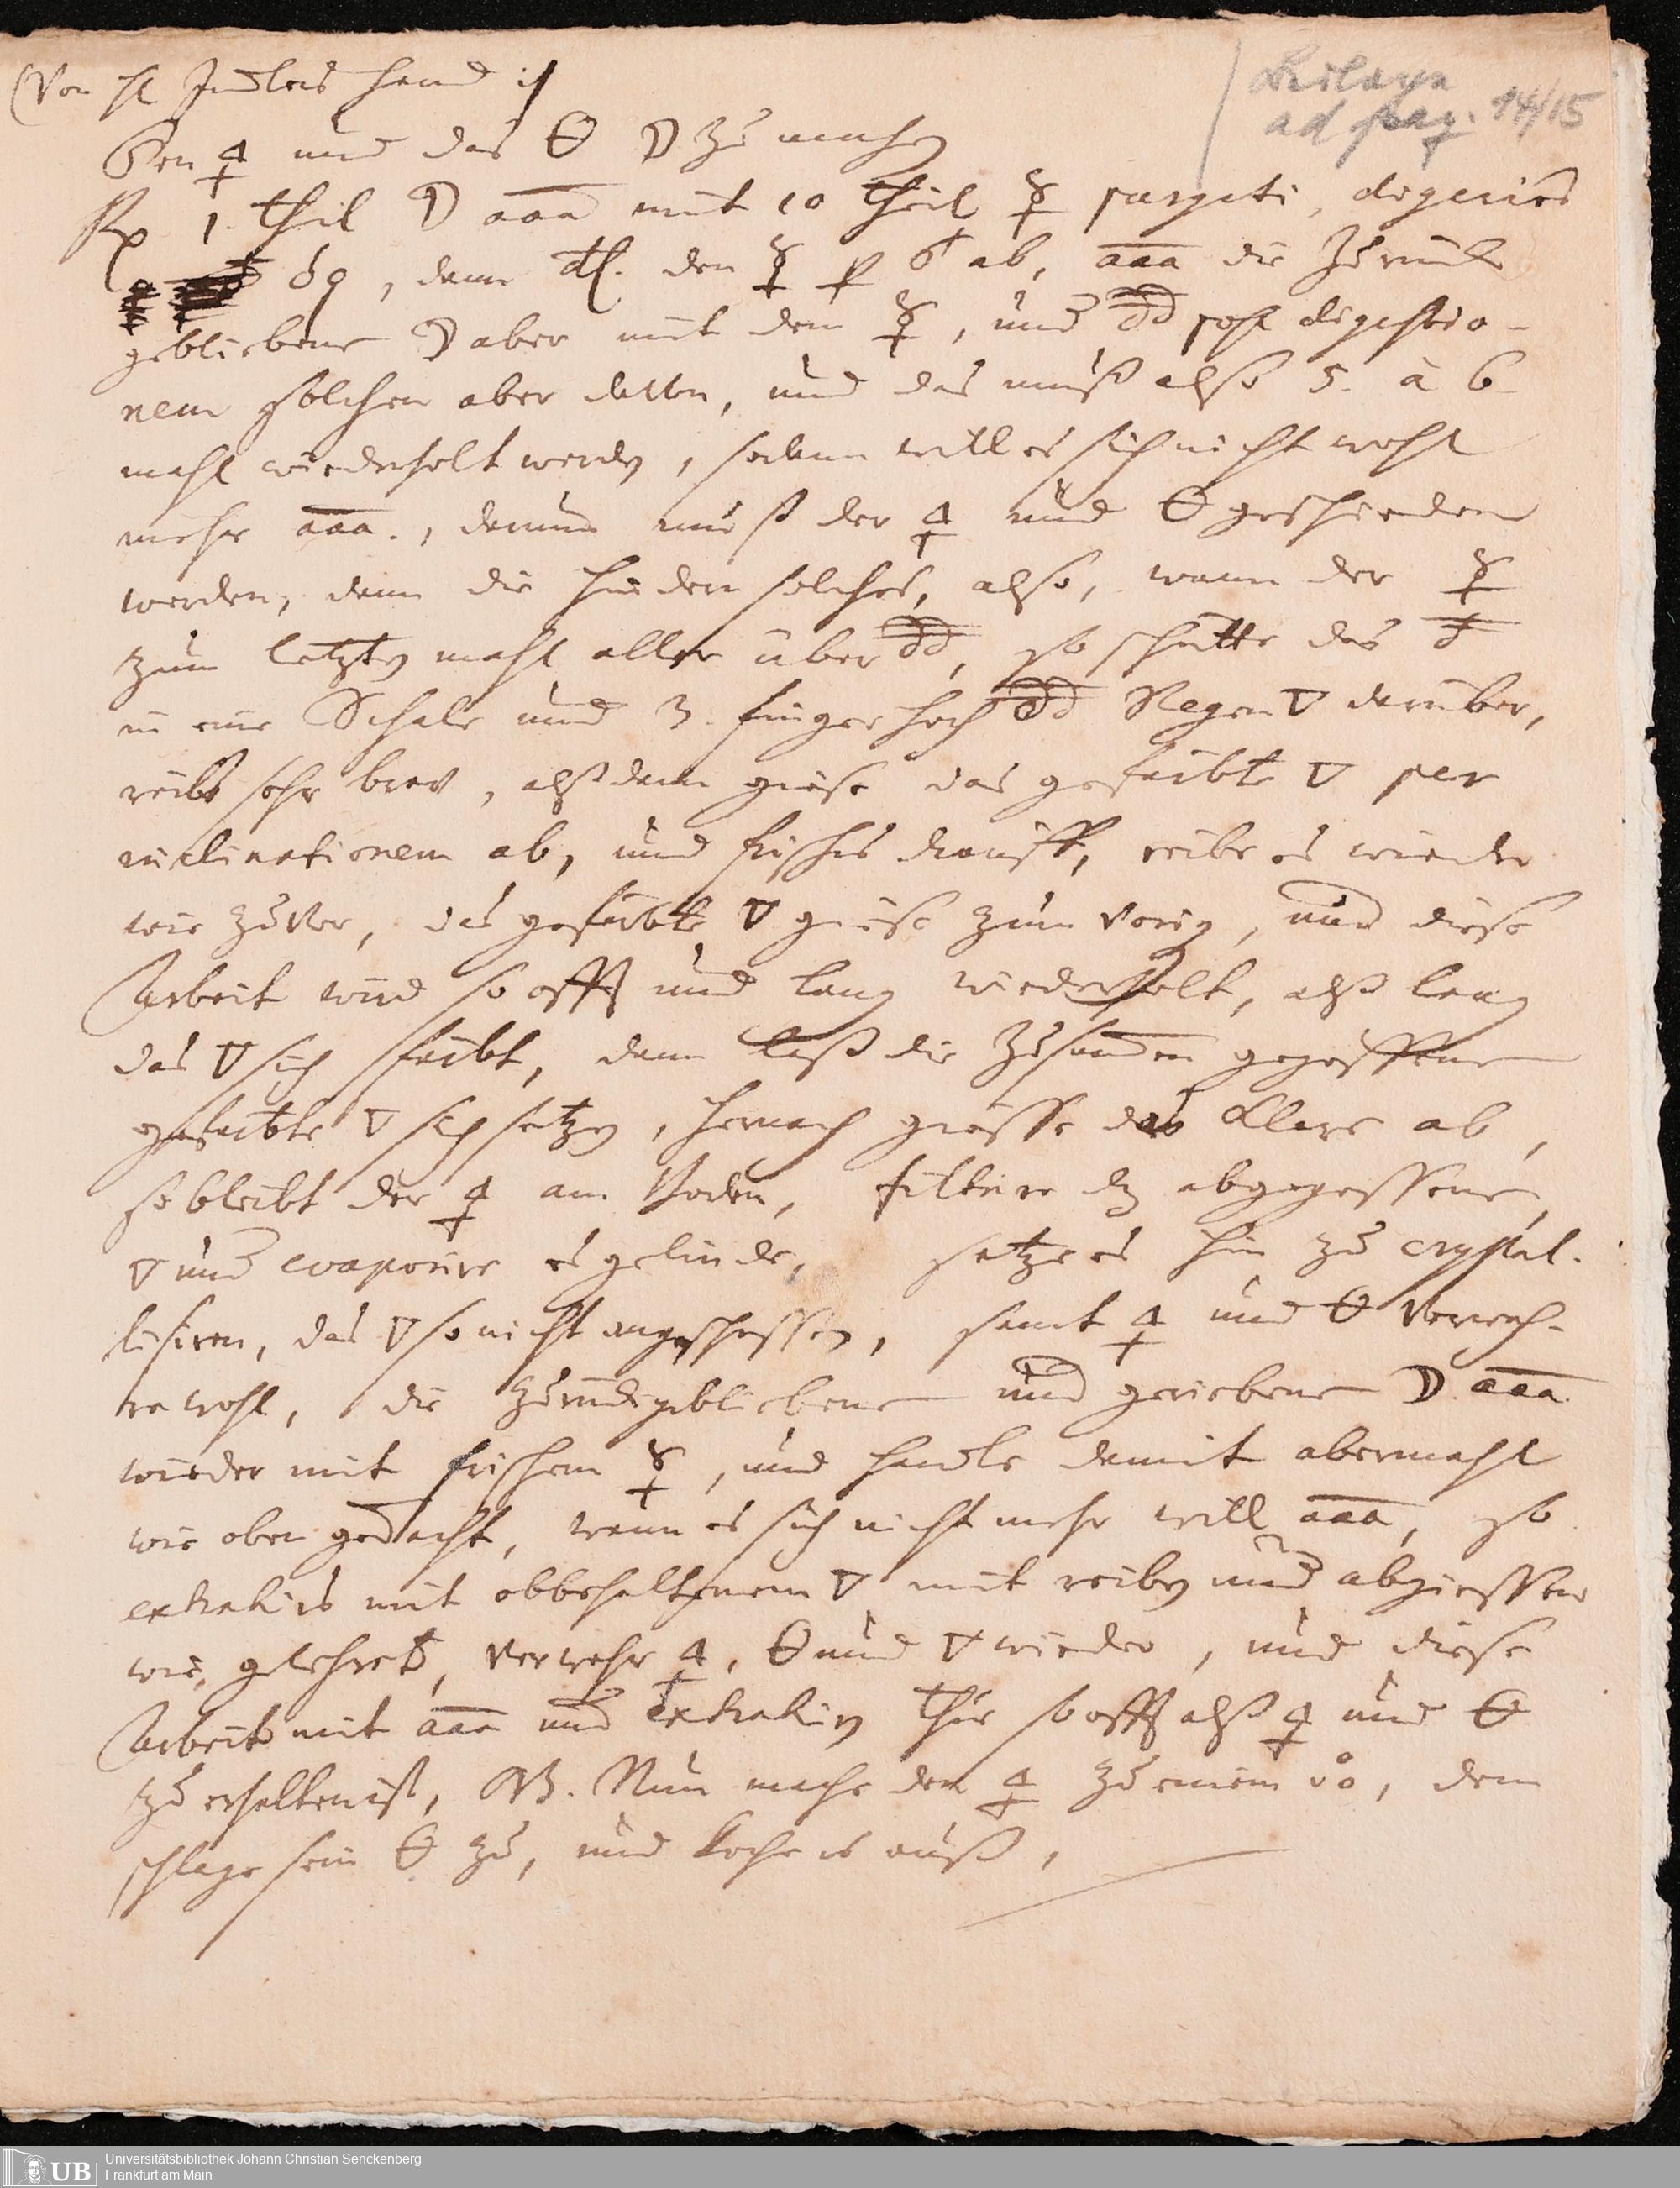 (Von H. Hand :/
Beilage
ad pag. 14/15
Den 🜍 und das 🜔 ☽ zu machen
Rp 1. theil ☽ aaa mit 10 theil ☿ purgati, digerirs
, dann den ☿ p ab, aaa die Zurück
gebliebene ☽ aber mit dem ☿, und post digestio-
nem solchen aber, und das muß also 5. à 6
mahl wiederholt werden, sodann will es sich nicht wohl
mehr aaa., dann muß der 🜍 und 🜔 geschieden
werden, denn die hindern solches, also, wann der ☿
zum letzten mahl aller über, so schütte das
in eine Schale und 3. finger hoch Regen 🜄 darüber,
reibs sehr brav, alßdann giese das gefärbte 🜄 per
inclinationem ab, und frisches drauff, reibe es wieder
wie zuvor, das gefärbte 🜄 giese zum vorig, und diese
Arbeit wird so offt und lang wiederholt, alß lang
das 🜄 sich färbt, dann laß die Zusammen gegossene
gefärbte 🜄 sich setzen, hernach giesse das Klare ab,
so bleibt der 🜍 am Boden, filtrire dz abgegossene
🜄 und evaporire es gelinde, setze es hin zu crystal-
lisiren, das 🜄 so nicht angeschossen, samt 🜍 und 🜔 verwah-
re wohl, die Zurückgebliebene und geriebene ☽ aaa
wieder mit frischem ☿, und handle damit abermahl
wie oben gedacht, wann es sich nicht mehr will aaa, so
extrahirs mit obbehaltenem 🜄 mit reiben und abgiessen
wie gelehret, verwahr 🜍, 🜔 und 🜄 wieder, und diese
Arbeit mit aaa und extrahiren thue so offt alß 🜍 und 🜔
zu erhalten ist, NB. Nun mache den 🜍 zu einem, dem
schlage sein 🜔 zu, und koche es auß,
UB Universitätsbibliothek Johann Christian Senckenberg
Frankfurt am Main